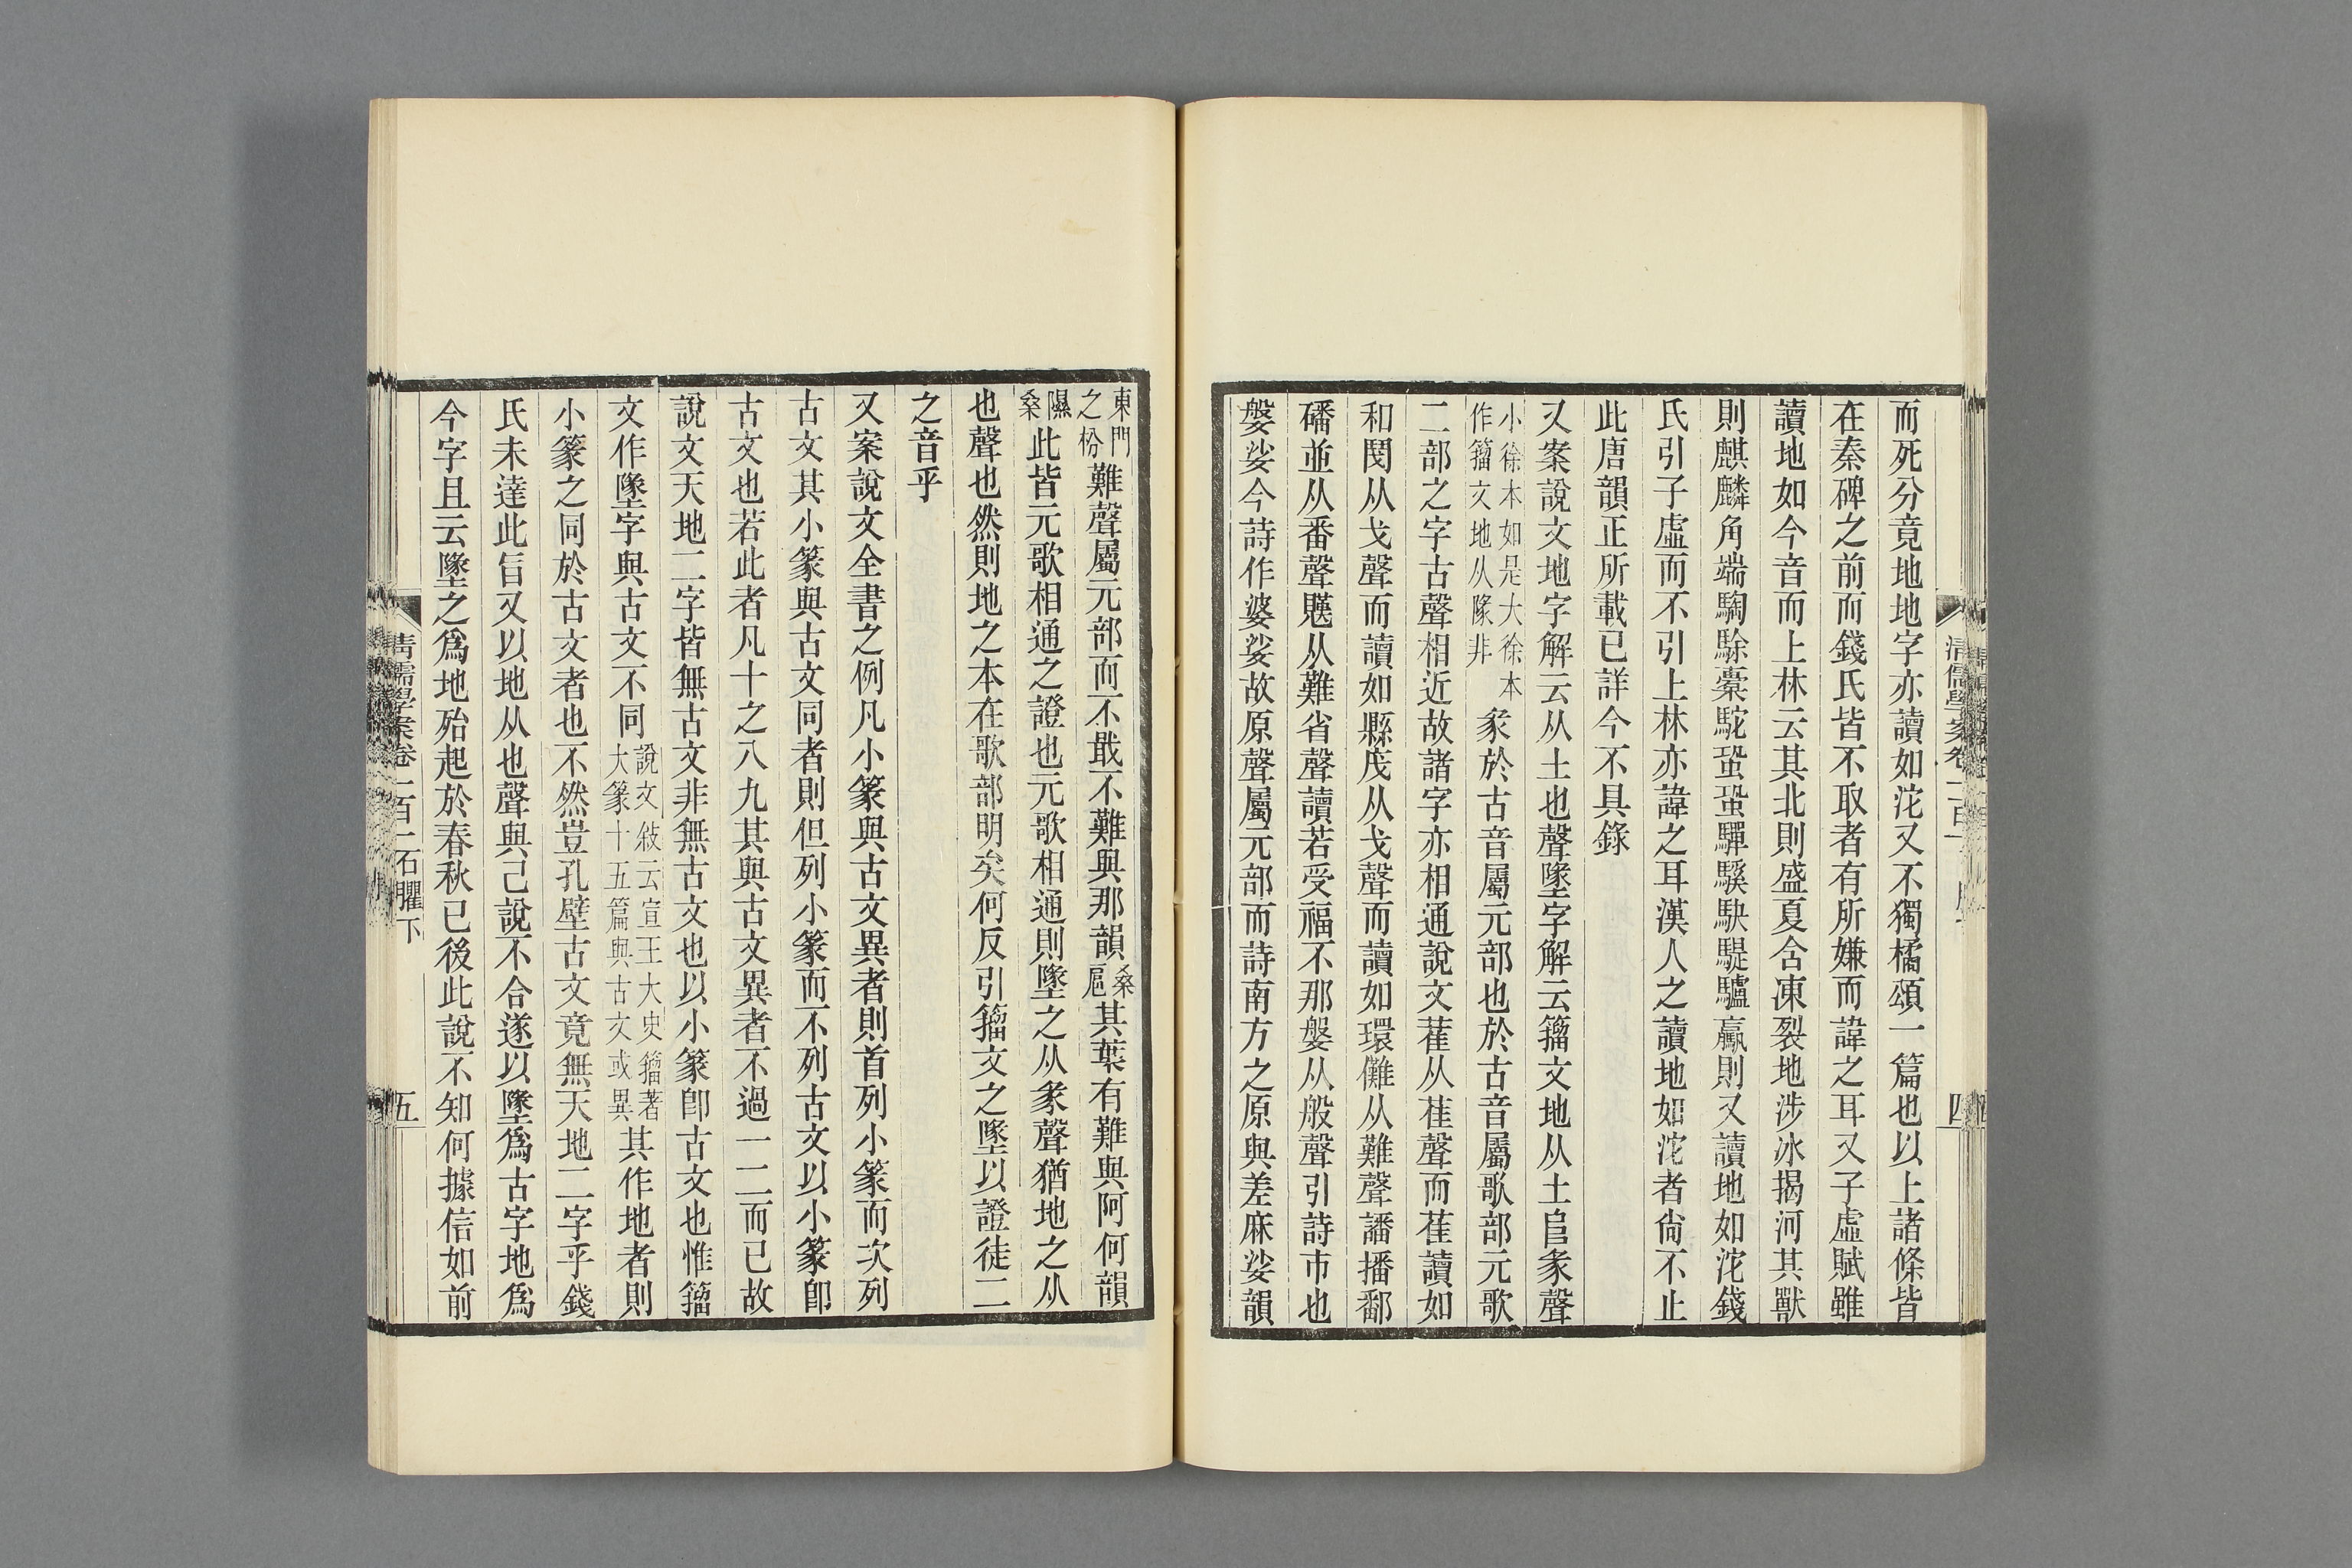 而死分竟地地字亦讀如沱又不獨橘頌一篇也以上諸條皆
在秦碑之前而錢氏皆不取者有所嫌而諱之耳又子虛賦雖
讀地如今音而上林云其北則盛夏含凍裂地涉冰揭河其獸
則麒麟角端騊駼橐駝蛩蛩驒騱駃騠驢驘則又讀地如沱錢
氏引子虛而不引上林亦諱之耳漢人之讀地如沱者尙不止
此唐韻正所載已詳今不具錄
又案說文地字解云从土也聲墬字解云籀文地从土𨸏彖聲
小徐本如是大徐本
作籀文地从隊非
彖於古音屬元部也於古音屬歌部元歌
二部之字古聲相近故諸字亦相通說文萑从隹聲而萑讀如
和閔从戈聲而讀如縣㦴从戈聲而讀如環儺从難聲譒播鄱
磻並从番聲㒟从難省聲讀若受福不那媻从般聲引詩市也
媻娑今詩作婆娑故原聲屬元部而詩南方之原與差麻娑韻
東門
之枌
難聲屬元部而不戢不難與那韻
桑
扈
其葉有難與阿何韻
隰
桑
此皆元歌相通之證也元歌相通則墬之从彖聲猶地之从
也聲也然則地之本在歌部明矣何反引籀文之墬以證徒二
之音乎
又案說文全書之例凡小篆與古文異者則首列小篆而次列
古文其小篆與古文同者則但列小篆而不列古文以小篆卽
古文也若此者凡十之八九其與古文異者不過一二而已故
說文天地二字皆無古文非無古文也以小篆卽古文也惟籀
文作墬字與古文不同
說文敘云宣王大史籀著
大篆十五篇與古文或異
其作地者則
小篆之同於古文者也不然豈孔壁古文竟無天地二字乎錢
氏未達此旨又以地从也聲與己說不合遂以墬爲古字地爲
今字且云墬之爲地殆起於春秋已後此說不知何據信如前
清儒學案卷一百一
四
清儒學案卷一百一 石臞下
五